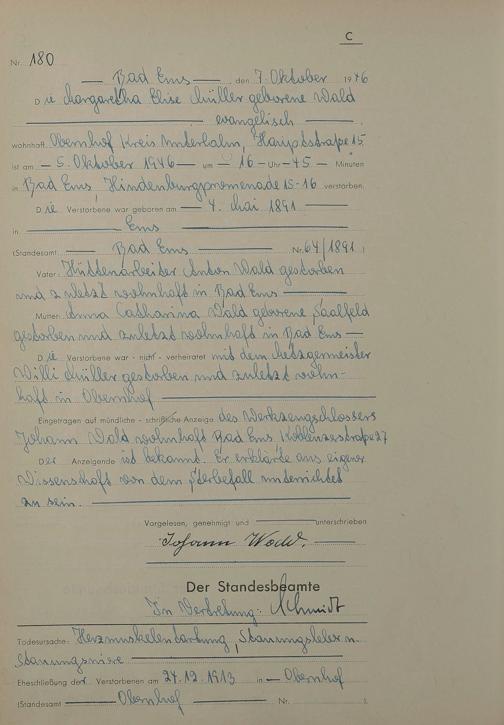 C
Nr. 180
— Bad Ems — den 7. Oktober 1946
Die Margaretha Elise Müller geborene Wald
— evangelisch —
wohnhaft Obernhof Kreis Unterlahn, Hauptstraße 15
ist am — 5. Oktober 1946 — um — 16 — Uhr — 45 — Minuten
in Bad Ems, Hindenburgpromenade 15-16 verstorben.
Die Verstorbene war geboren am — 4. Mai 1891 —
in — Ems —
(Standesamt — Bad Ems — Nr. 64/1891 )
Vater: Hüttenarbeiter Anton Wald gestorben
und zuletzt wohnhaft in Bad Ems —
Mutter: Anna Catharina Wald geborene Saalfeld
gestorben und zuletzt wohnhaft in Bad Ems —
Die Verstorbene war - nicht - verheiratet mit dem Metzgermeister
Willi Müller gestorben und zuletzt wohn-
haft in Obernhof —
Eingetragen auf mündliche - schriftliche Anzeige des Werkzeugschlossers
Johann Wald wohnhaft Bad Ems Koblenzerstraße 27
Der Anzeigende ist bekannt. Er erklärte aus eigener
Wissenschaft von dem Sterbefall unterrichtet
zu sein. —
Vorgelesen, genehmigt und — unterschrieben
Johann Wald. —
Der Standesbeamte
In Vertretung: Schmidt
Todesursache: Herzmuskelentartung, Stauungsleber u.
Stauungsniere —
Eheschließung der Verstorbenen am 24.12.1913 in — Obernhof
(Standesamt — Obernhof — Nr. ).